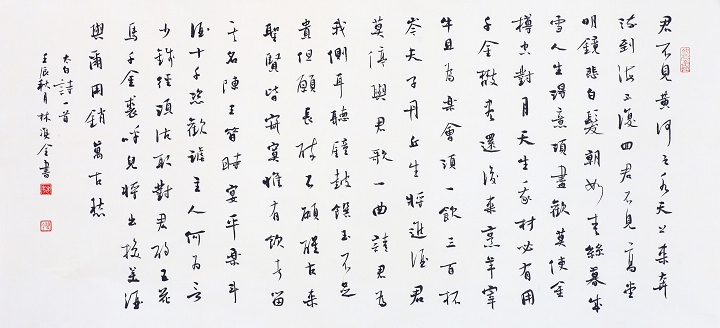 君不見黄河之水天上来奔
流到海不復回君不見高堂
明鏡悲白髮朝如青絲暮成
雪人生得意須盡歡莫使金
樽空對月天生我材必有用
千金散盡還復来烹羊宰
牛且為樂會須一飲三百杯
岑夫子丹丘生將進酒君
莫停與君歌一曲請君為
我側耳聽鐘鼓饌玉不足
貴但願長醉不願醒古来
聖賢皆寂寞惟有飲者留
其名陳王昔時宴平樂斗
酒十千恣歡謔主人何為言
少錢徑須沽取對君酌五花
馬千金裘呼兒將出換美酒
與爾同銷萬古愁
太白詩一首
壬辰秋月林
書